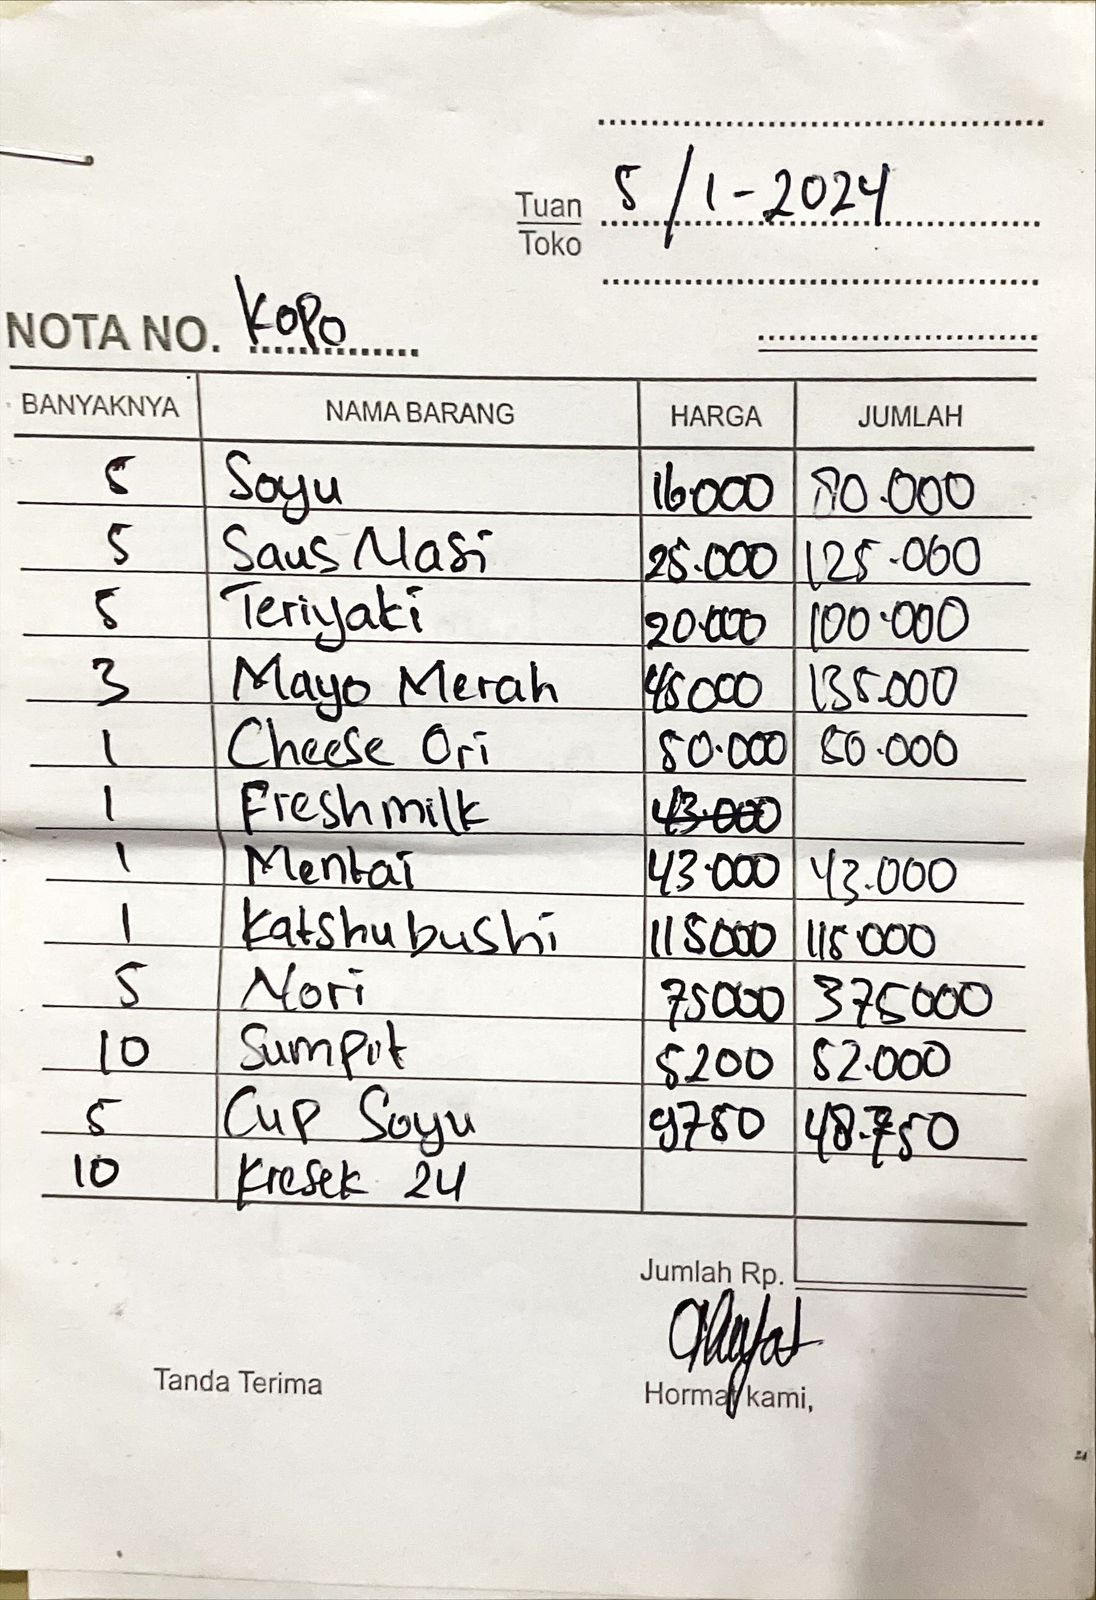 5/1-2024
Tuan
Toko
NOTA NO. Kopo
BANYAKNYA NAMA BARANG HARGA JUMLAH
5 Soyu 16.000 80.000
5 Saus Nasi 25.000 125.000
5 Teriyaki 20.000 100.000
3 Mayo Merah 45000 135.000
1 Cheese Ori 50.000 50.000
1 Freshmilk 43.000
1 Mentai 43.000 43.000
1 Katshubushi 115000 115.000
5 Nori 75000 375000
10 Sumpit 5200 52.000
5 Cup Soyu 9750 48.750
10 Kresek 24
Jumlah Rp.
Tanda Terima Hormat kami,